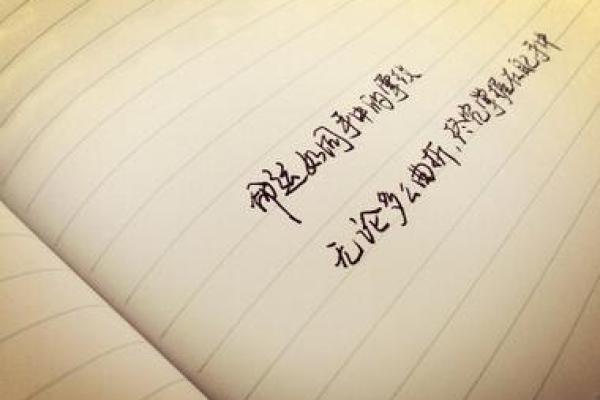 命运如同手中的掌纹
无论多么曲折，终究掌握在我手中